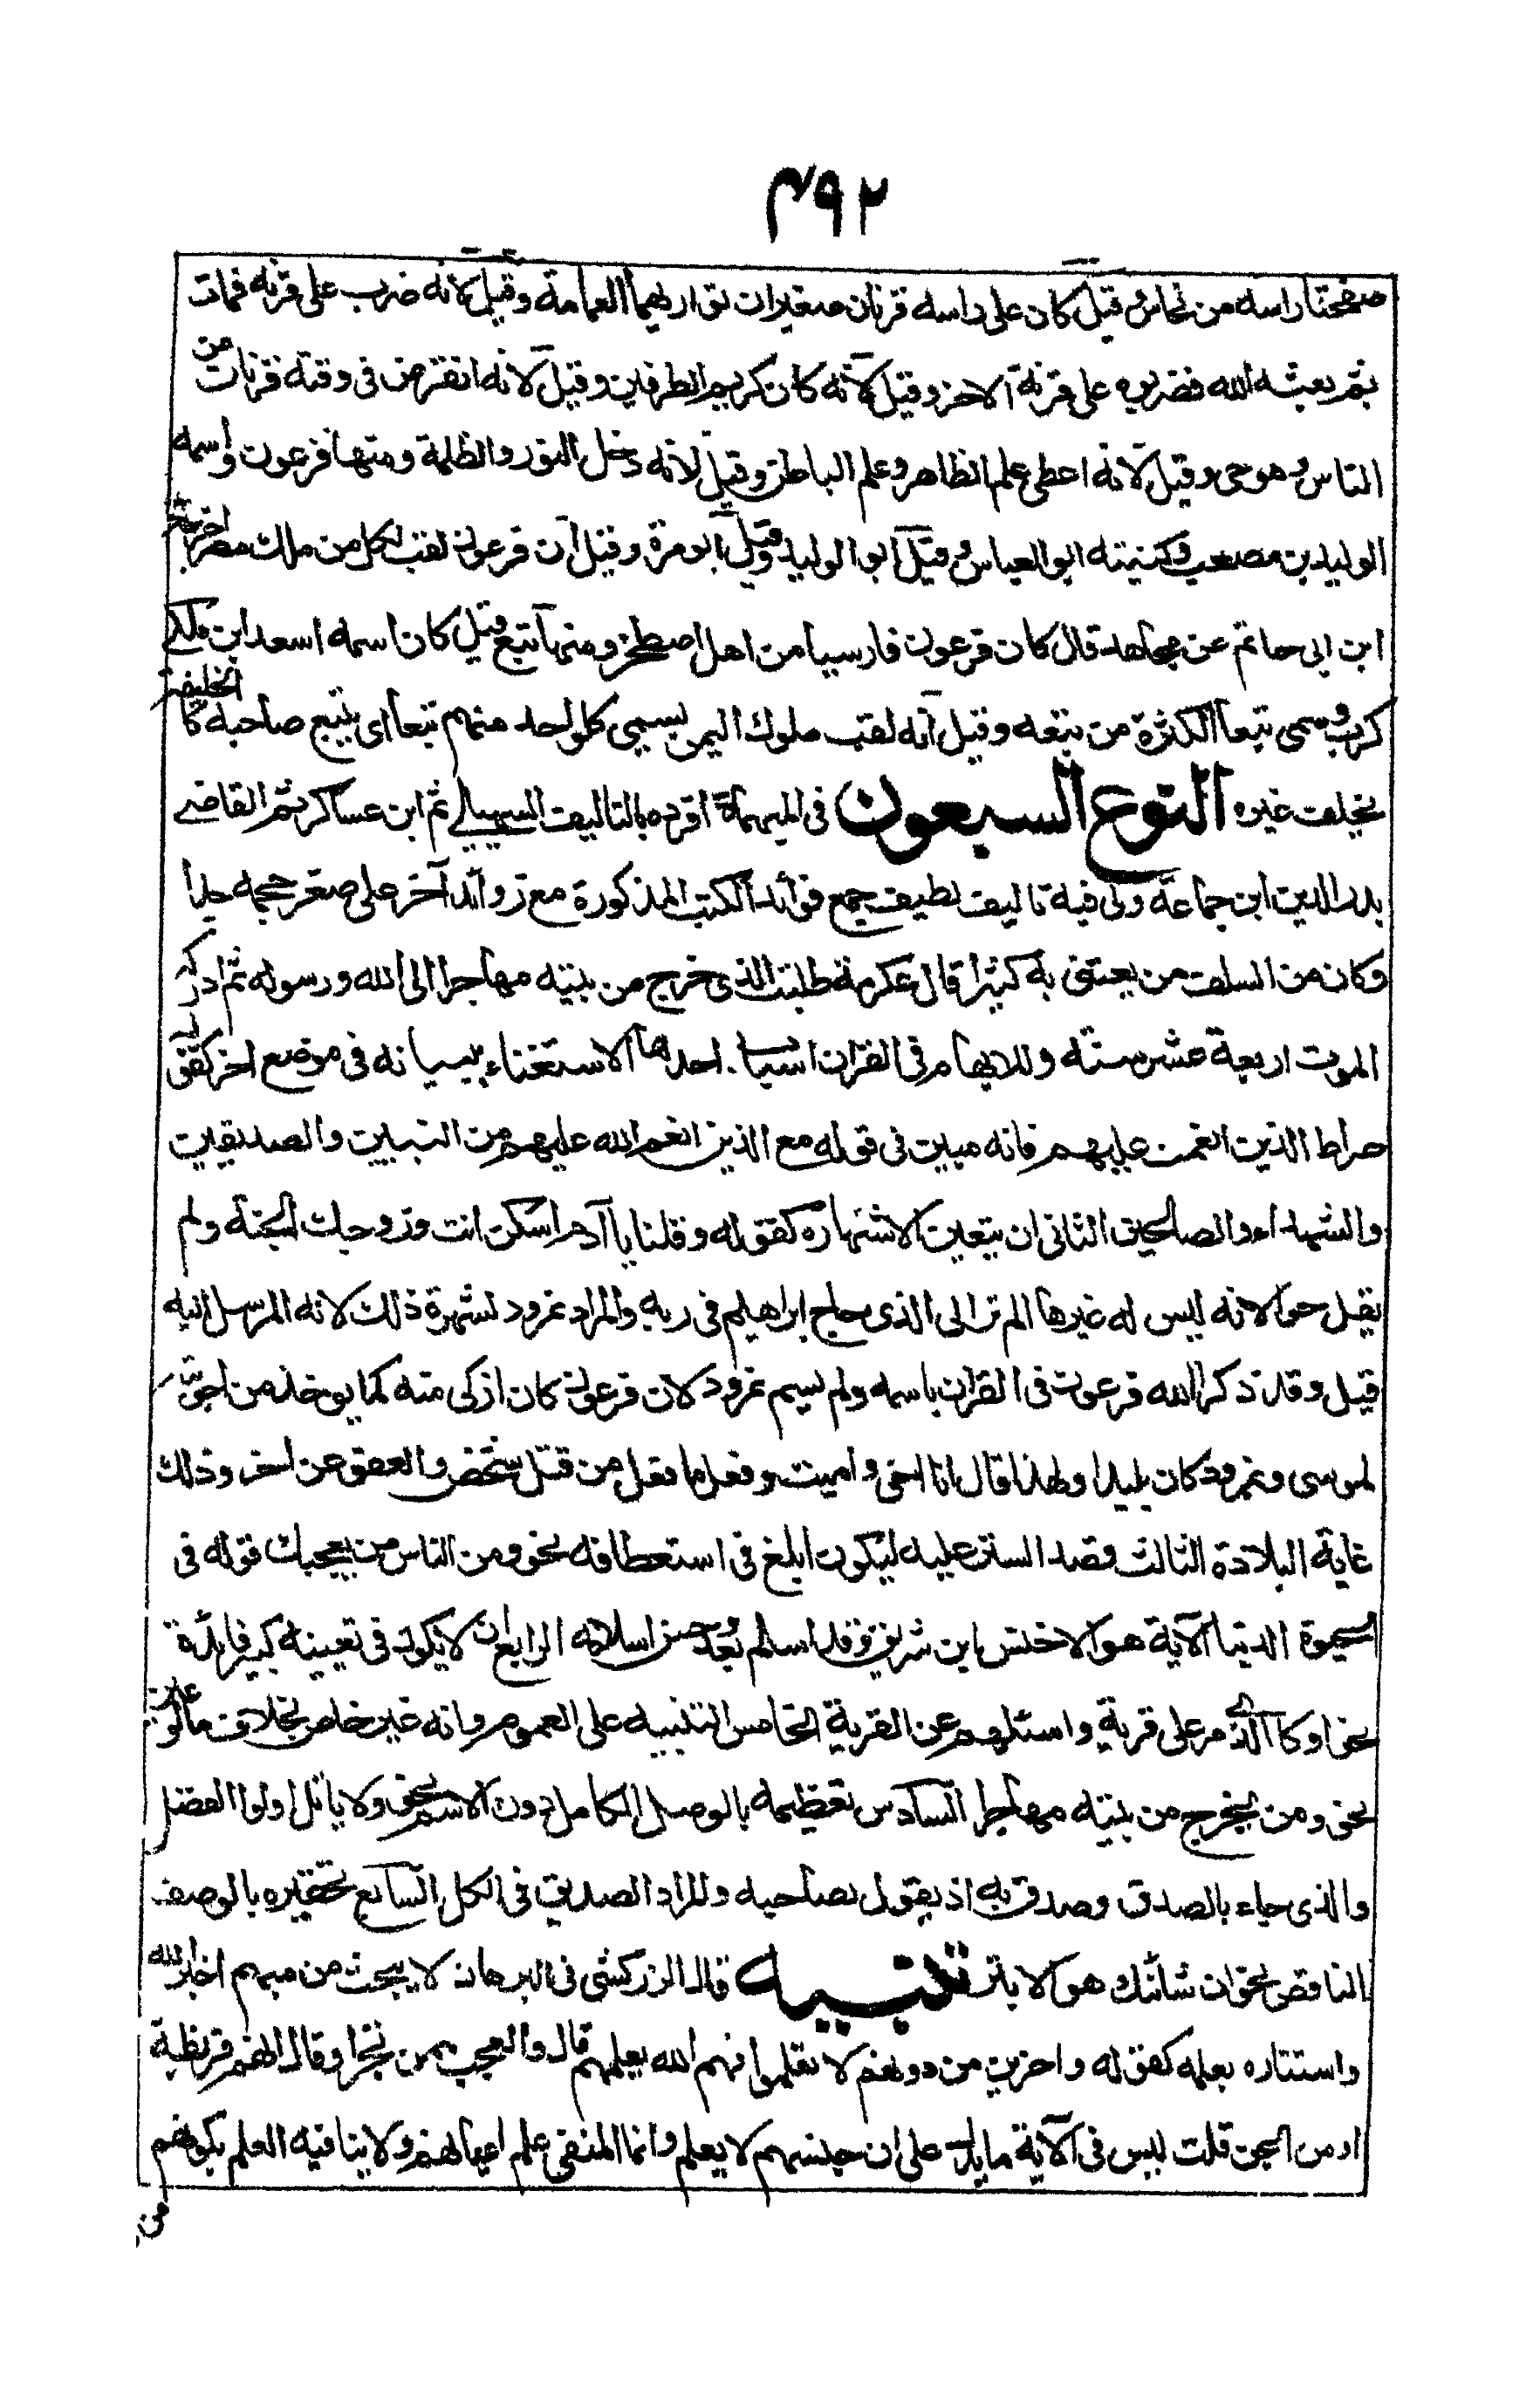 ٤٩٢
صفحتا راسه من نحاس وقيل كان على راسه قرنان صغيران تواريهما العمامة وقيل لانه ضرب على قرنه فمات
ثم بعثه الله فضربوه على قرنه الاخر وقيل لانه كان كريم الطرفين وقيل لانه انقرض فى وقته قرنان من
الناس وهو حى وقيل لانه اعطى علم الظاهر وعلم الباطن وقيل لانه دخل النور والظلمة ومنها فرعون واسمه
الوليد بن مصعب وكنيته ابو العباس وقيل ابو الوليد وقيل ابو مرة وقيل ان فرعون لقب لكل من ملك مصر اخرج
ابن ابى حاتم عن مجاهد قال كان فرعون فارسيا من اهل اصطخر ومنها تبع قيل كان اسمه اسعد ابن ملكى
كرب وسمى تبعا لكثرة من تبعه وقيل انه لقب ملوك اليمن يسمى كل واحد منهم تبعا اى يتبع صاحبه كالخليفة
يخلف غيره النوع السبعون فى المبهمات افرده بالتاليف السهيلى ثم ابن عساكر ثم القاضى
بدر الدين ابن جماعة ولى فيه تاليف لطيف جمع فوائد الكتب المذكورة مع زوائد آخر على صغر حجمه جدا
وكان من السلف من يعتنى به كثيرا قال عكرمة طلبت الذى خرج من بيته مهاجرا الى الله ورسوله ثم ادركه
الموت اربعة عشر سنة وللابهام فى القران اسباب احدها الاستغناء ببيانه فى موضع اخر كقوله
صراط الذين انعمت عليهم فانه مبين فى قوله مع الذين انعم الله عليهم من النبيين والصديقين
والشهداء والصالحين الثانى ان يتعين لاشتهاره كقوله وقلنا يا آدم اسكن انت وزوجك الجنة ولم
يقل حوا لانه ليس له غيرها الم تر الى الذى حاج ابراهيم فى ربه والمراد نمرود لشهرة ذلك لانه المرسل اليه
قيل وقد ذكر الله فرعون فى القران باسمه ولم يسم نمرود لان فرعون كان ازكى منه كما يوخذ من اجوبته
لموسى ونمرود كان بليدا ولهذا قال انا احى واميت وفعل ما فعل من قتل شخص والعفو عن اخر وذلك
غاية البلادة الثالث قصد الستر عليه ليكون ابلغ فى استعطافه نحو ومن الناس من يعجبك قوله فى
الحيوة الدنيا الآية هو الاخنس ابن شريق وقد اسلم بعد وحسن اسلامه الرابع ان لا يكون فى تعيينه كبير فايدة
نحو او كالذى مر على قرية واسئلهم عن القرية الخامس التنبيه على العموم وانه غير خاص بخلاف ما لو عين
نحو ومن يخرج من بيته مهاجرا السادس تعظيمه بالوصف الكامل دون الاسم نحو ولا ياتل اولوا الفضل
والذى جاء بالصدق وصدق به اذ يقول لصاحبه والمراد الصديق فى الكل السابع تحقيره بالوصف
الناقص نحو ان شانئك هو الابتر تنبيه قال الزركشى فى البرهان لا يبحث عن مبهم اخبر الله
واستتاره بعلمه كقوله واخرين من دونهم لا تعلمونهم الله يعلمهم قال والعجب ممن تجرا وقال انهم قريظة
او من الجن قلت ليس فى الآية ما يدل على ان جنسهم لا يعلم وانما المنفى علم اعيانهم ولا ينافيه العلم بكونهم
من